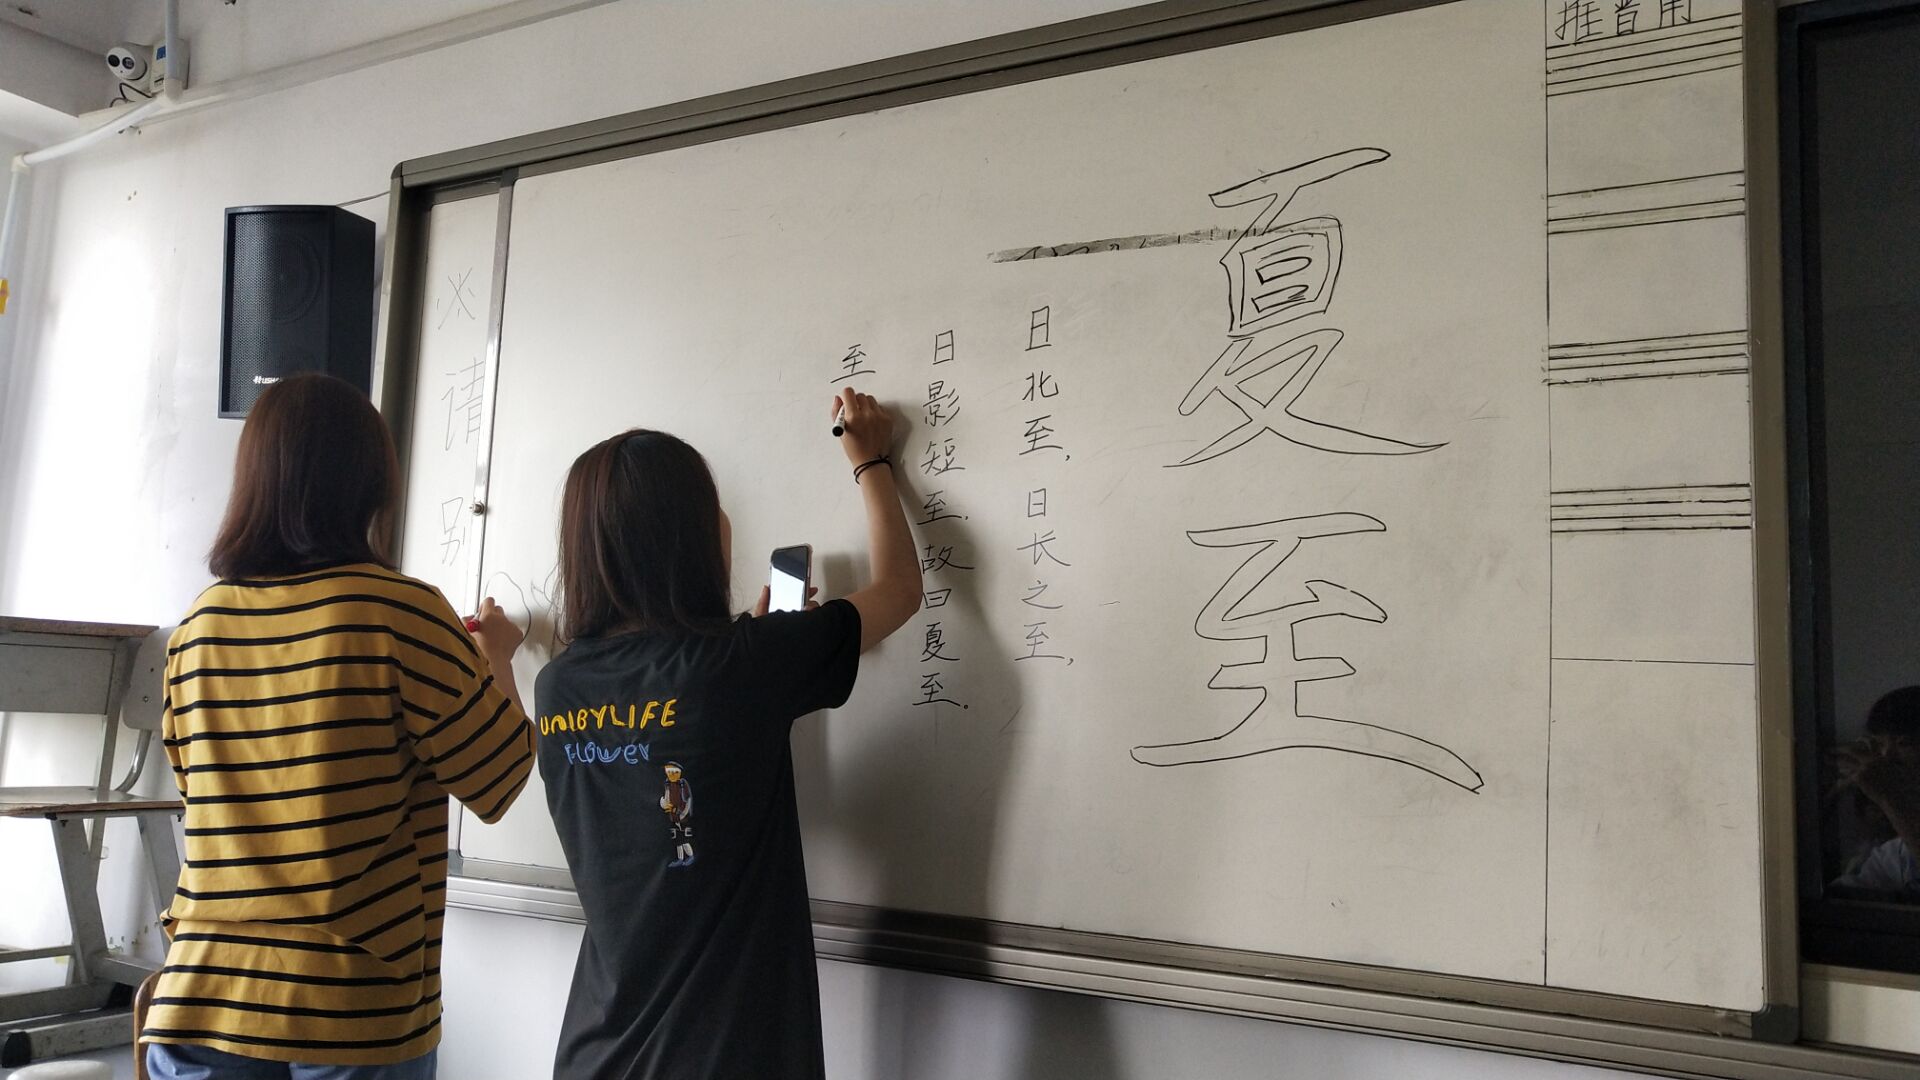 推普周
夏至
日北至，日长之至，
日影短至，故曰夏至。
至
※请别
UNIBYLIFE
FLOWER